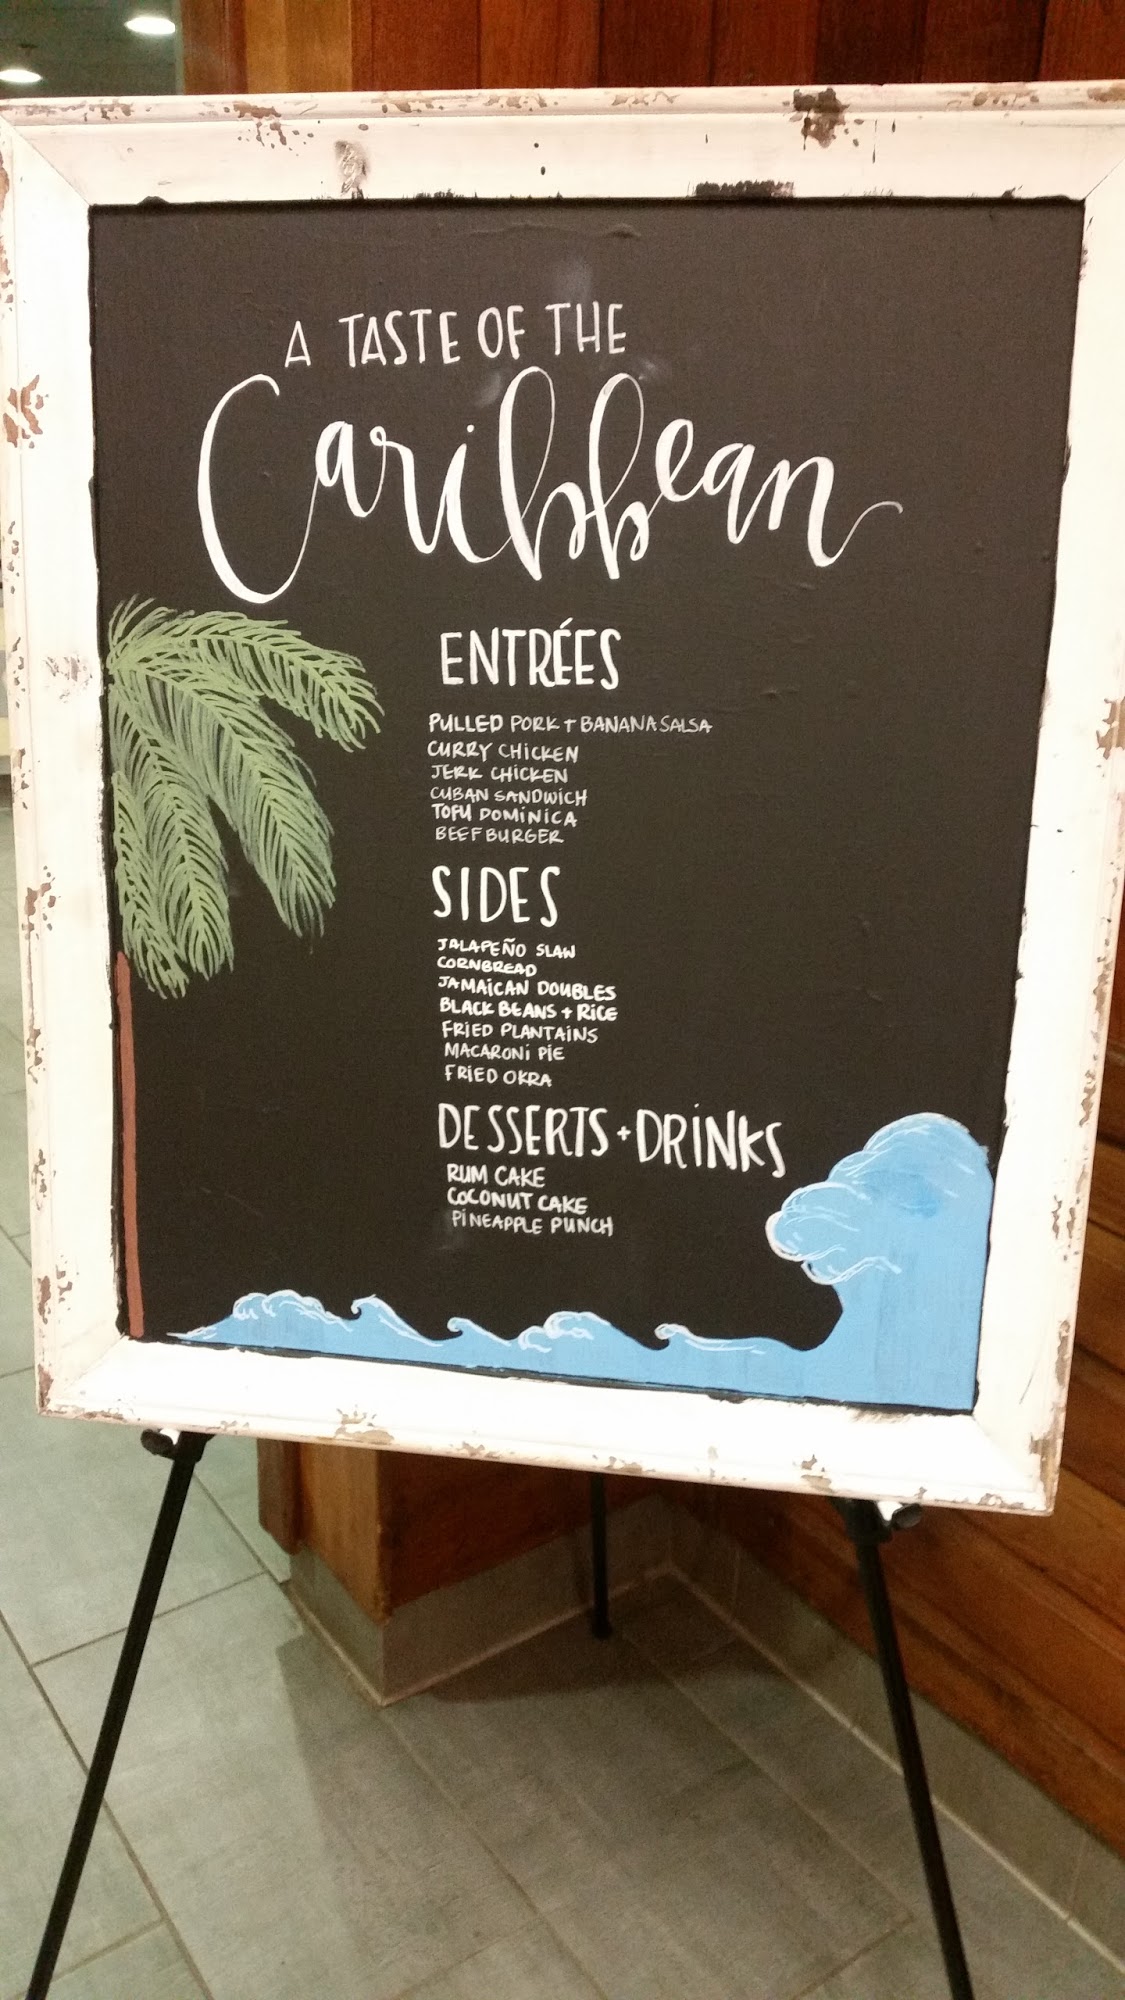 A TASTE OF THE
Caribbean
ENTRÉES
PULLED PORK + BANANA SALSA
CURRY CHICKEN
JERK CHICKEN
CUBAN SANDWICH
TOFU DOMINICA
BEEF BURGER
SIDES
JALAPEÑO SLAW
CORNBREAD
JAMAICAN DOUBLES
BLACK BEANS + RICE
FRIED PLANTAINS
MACARONI PIE
FRIED OKRA
DESSERTS + DRINKS
RUM CAKE
COCONUT CAKE
PINEAPPLE PUNCH